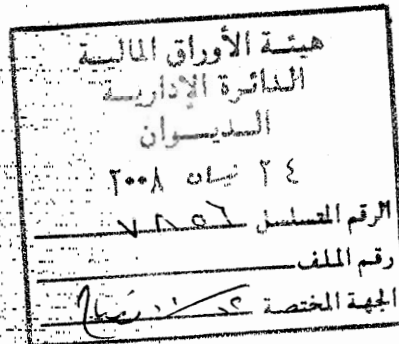 هيئة الأوراق المالية
الدائرة الإدارية
الديوان
٢٤ نيسان ٢٠٠٨
الرقم المتسلسل
رقم الملف
الجهة المختصة